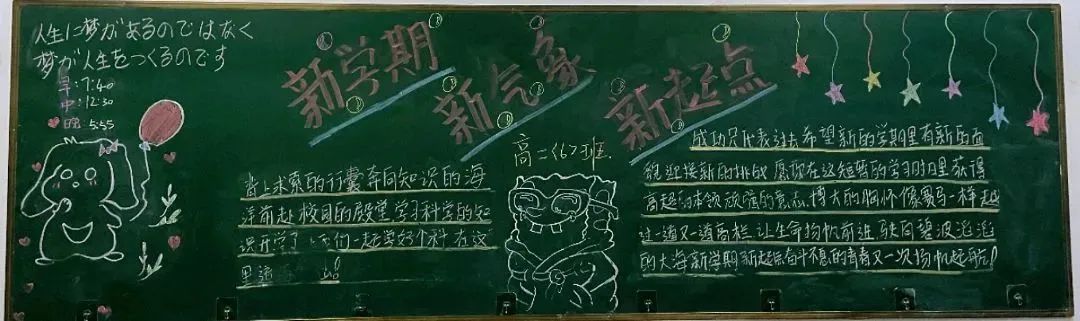 人生に夢があるのではなく
夢が人生をつくるのです
早:7:40
中:12:30
晚:5:55
新学期
新气象
新起点
高二<6>班
背上求索的行囊奔向知识的海
洋前赴校园的殿堂学习科学的知
识开学了 们一起学好 科在这
里
成功只代表过去希望新的学期里有新的面
貌迎接新的挑战愿你在这短暂的学习时日里获得
高超的本领顽强的意志、博大的胸怀像赛马一样越
过一道又一道高栏让生命扬帆前进驶向碧波滔滔
的大海新学期新起点奋斗不息的青春又一次扬帆起航!